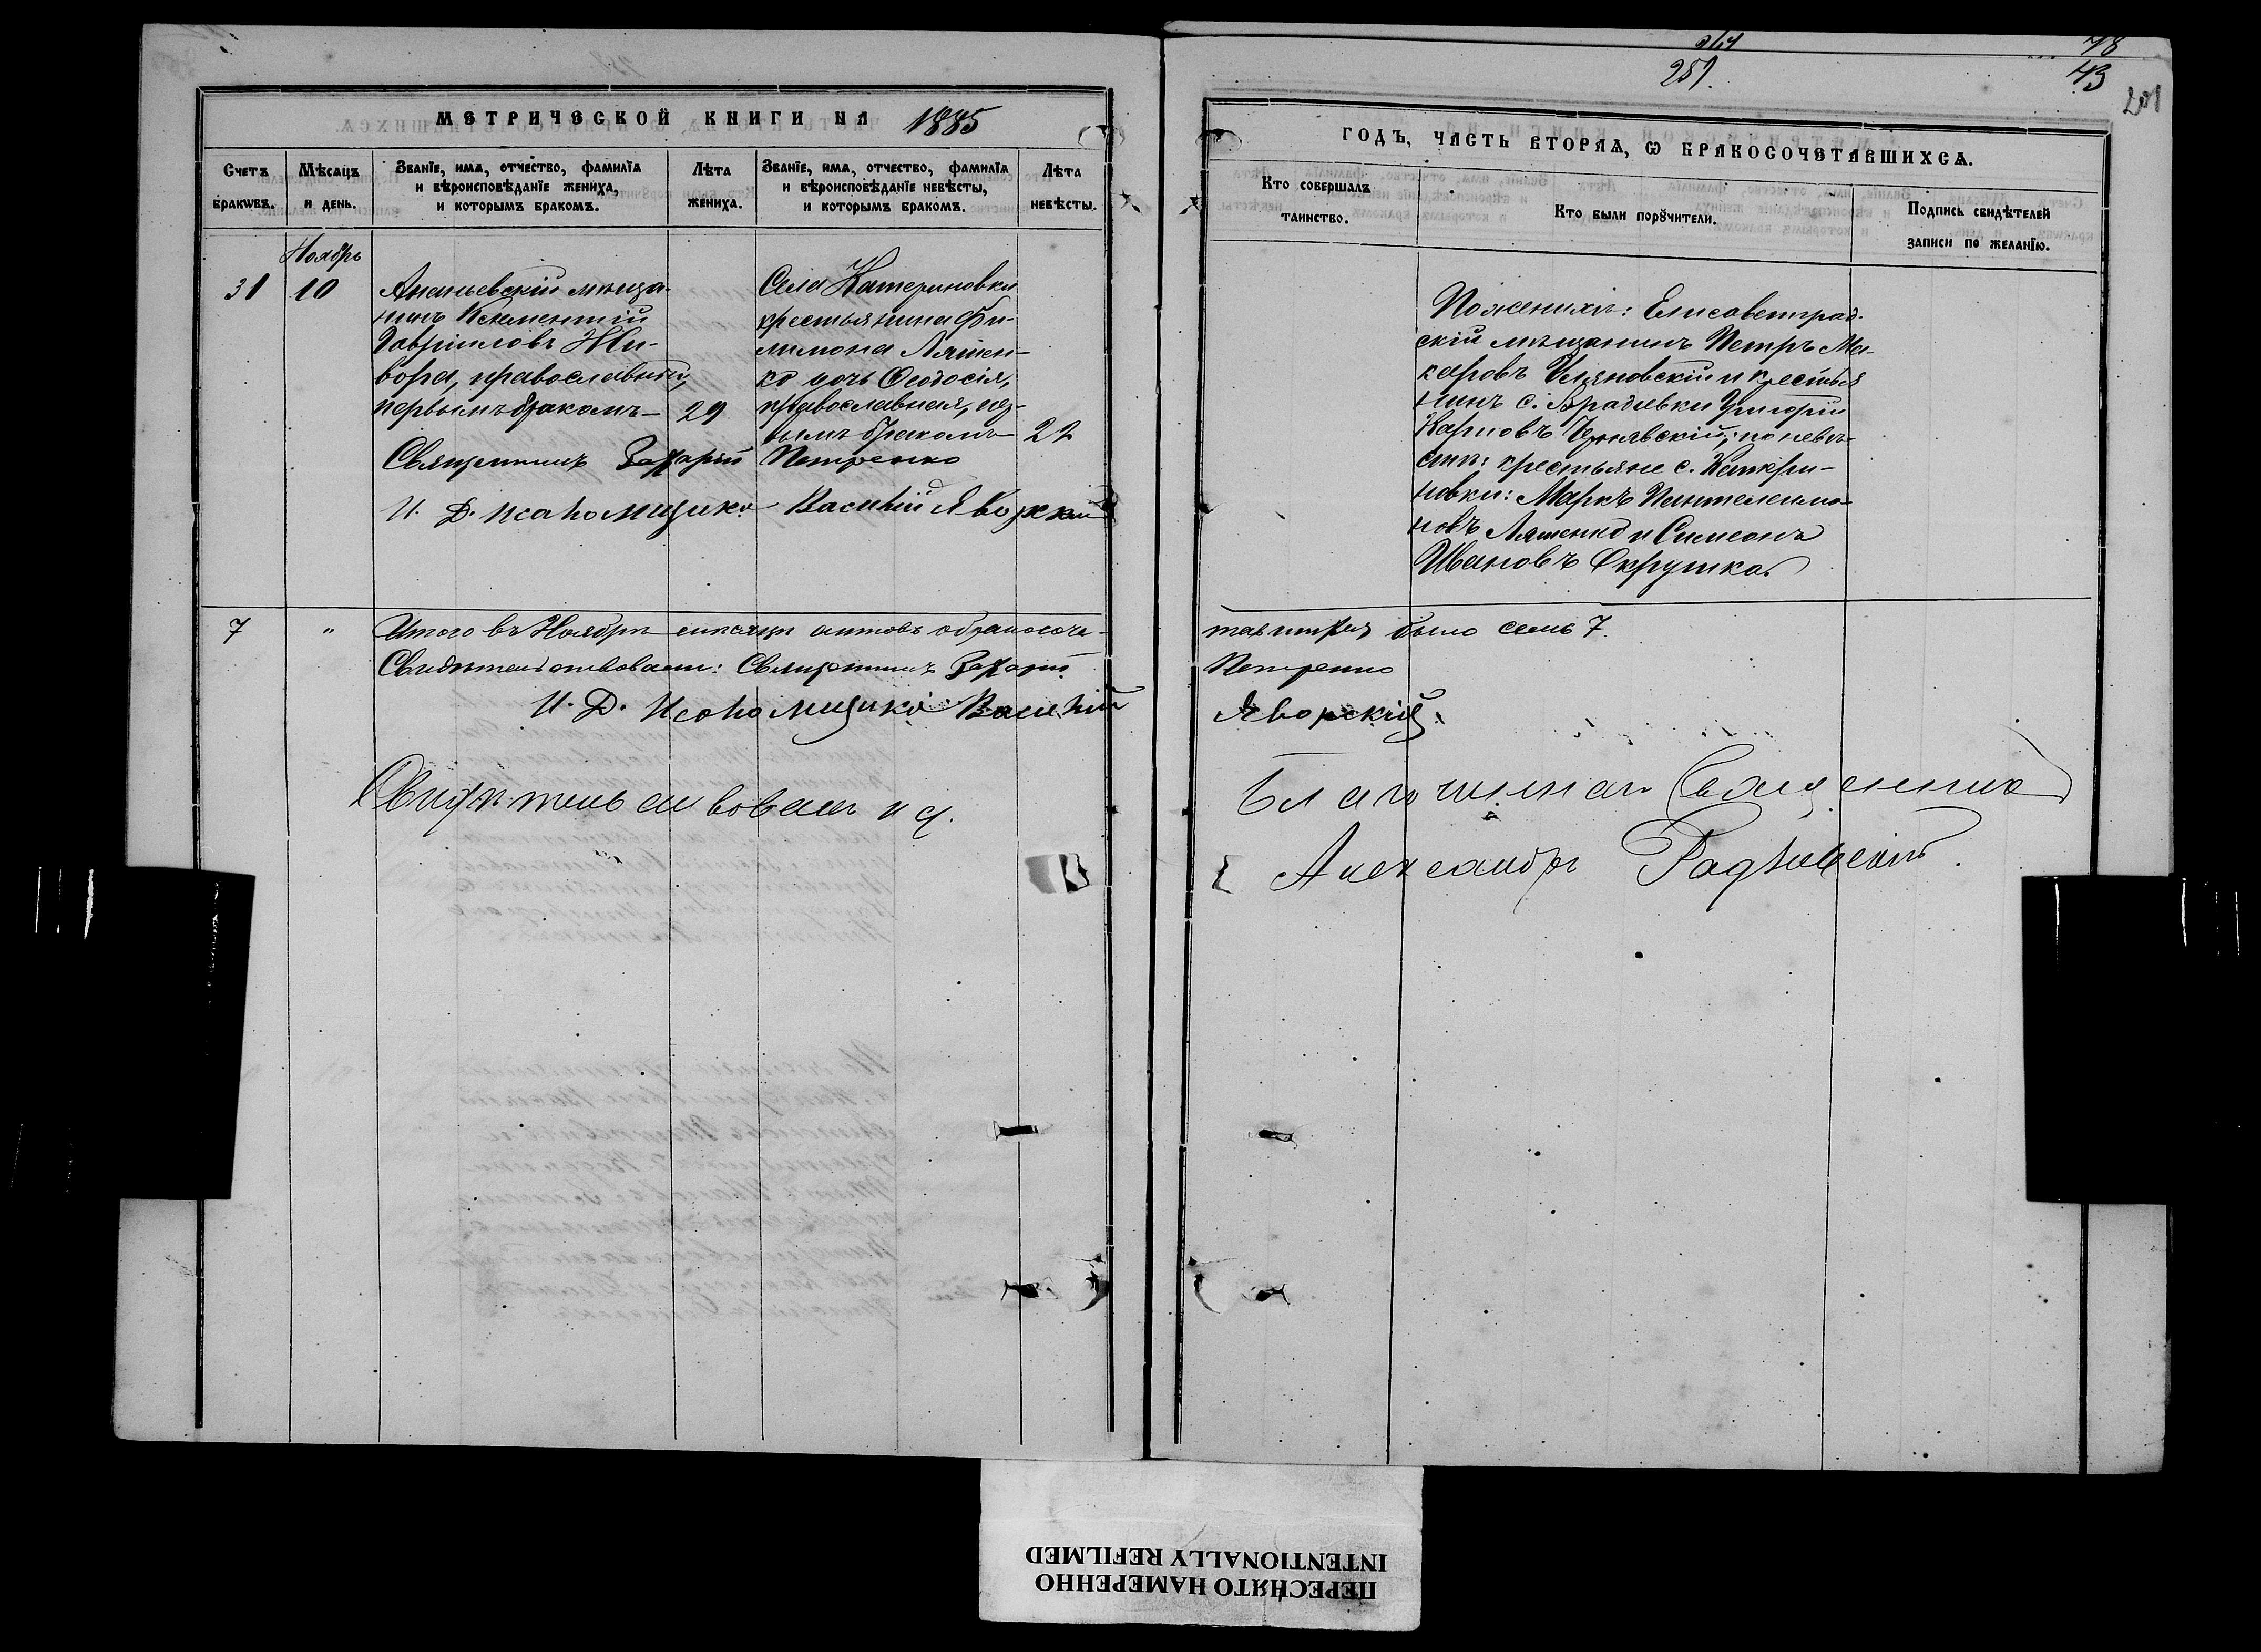 МЕТРИЧЕСКОЙ КНИГИ НА 1885
Счетъ браквъ.
Мѣсяцъ и день.
Званїе, имя, отчество, фамилїя и вѣроисповѣданїе жениха, и которымъ бракомъ.
Лѣта жениха.
Званїе, имя, отчество, фамилїя и вѣроисповѣданїе невѣсты, и которымъ бракомъ.
Лѣта невѣсты.
Ноябрь
31 10
Ананьевскій мѣща-
нинъ Климентій
Гавріиловъ Жи-
вора, православный,
первымъ бракомъ — 29
Села Катериновки
крестьянина Фи-
лимона Ляшен-
ко дочь Ѳеодосія,
православная, пер-
вымъ бракомъ — 22
Священникъ Захарій Петренко
И. Д. псаломщика Василій Яворскій
7 " Итого въ Ноябрѣ мѣсяцѣ актовъ о бракосоче-
Свидѣтельствовали: Священникъ Захарій
И. Д. Псаломщика Василій
Свидѣтельствовалъ и д.
264
251.
78
43
201
ГОДЪ, ЧАСТЬ ВТОРАЯ, Ѡ БРАКОСОЧЕТАВШИХСЯ.
Кто совершалъ таинство.
Кто были порꙋчители.
Подпись свидѣтелей записи по желанїю.
По женихѣ: Елисаветград-
скій мѣщанинъ Петръ Ма-
каровъ Ульяновскій и крестья
нинъ с. Врадіевки Григорій
Карповъ Чернявскій; по невѣ-
стѣ: крестьяне с. Катери-
новки: Маркъ Пантелеимо-
новъ Ляшенко и Симеонъ
Ивановъ Окрушко.
тавшихся было семь 7.
Петренко
Яворскій
Благочинный Священникъ
Александръ
ПЕРЕСНЯТО НАМЕРЕННО
INTENTIONALLY REFILMED